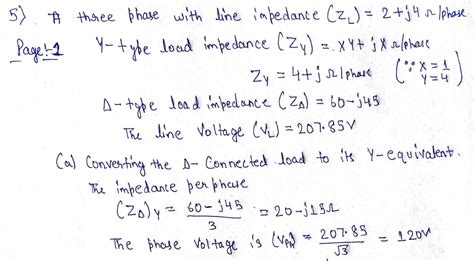 5) A three phase with line impedance (Z_L) = 2+j4 Ω/phase
Page:-1 Y-type load impedance (Z_Y) = XY+jX Ω/phase
Z_Y = 4+j Ω/phase (∵ X=1 Y=4)
Δ-type load impedance (Z_Δ) = 60-j45
The line Voltage (V_L) = 207.85V
(a) Converting the Δ-Connected load to its Y-equivalent.
The impedance per phase
(Z_Δ)_Y = 60-j45 / 3 = 20-j15Ω
The phase Voltage is (V_Ph) = 207.85 / √3 = 120V